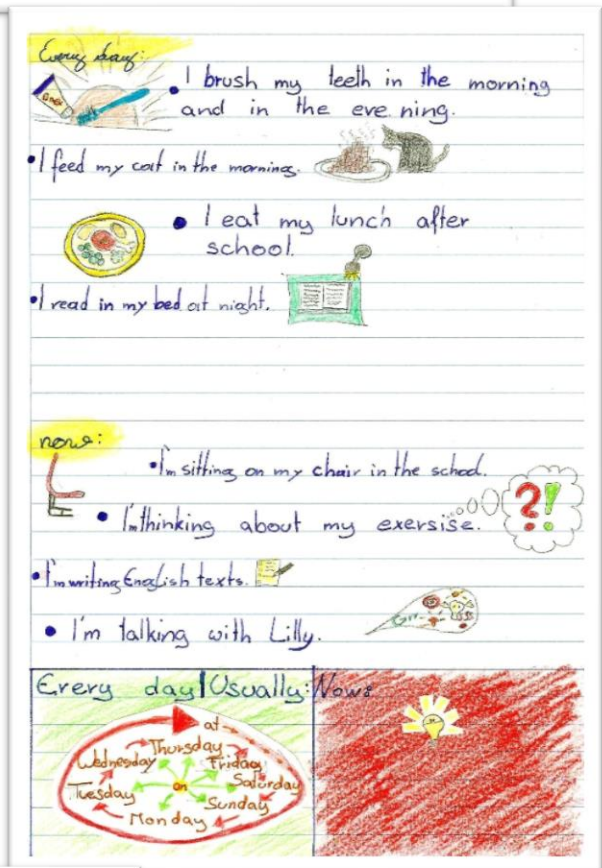 Every day:
• I brush my teeth in the morning
and in the evening.
• I feed my cat in the morning.
• I eat my lunch after
school.
• I read in my bed at night.
now:
• I'm sitting on my chair in the school.
?!
• I'm thinking about my exersise.
• I'm writing English texts.
• I'm talking with Lilly.
Grr...
Every day/Usually: Now:
at
Thursday
Wednesday Friday
Tuesday on Saturday
Sunday
Monday